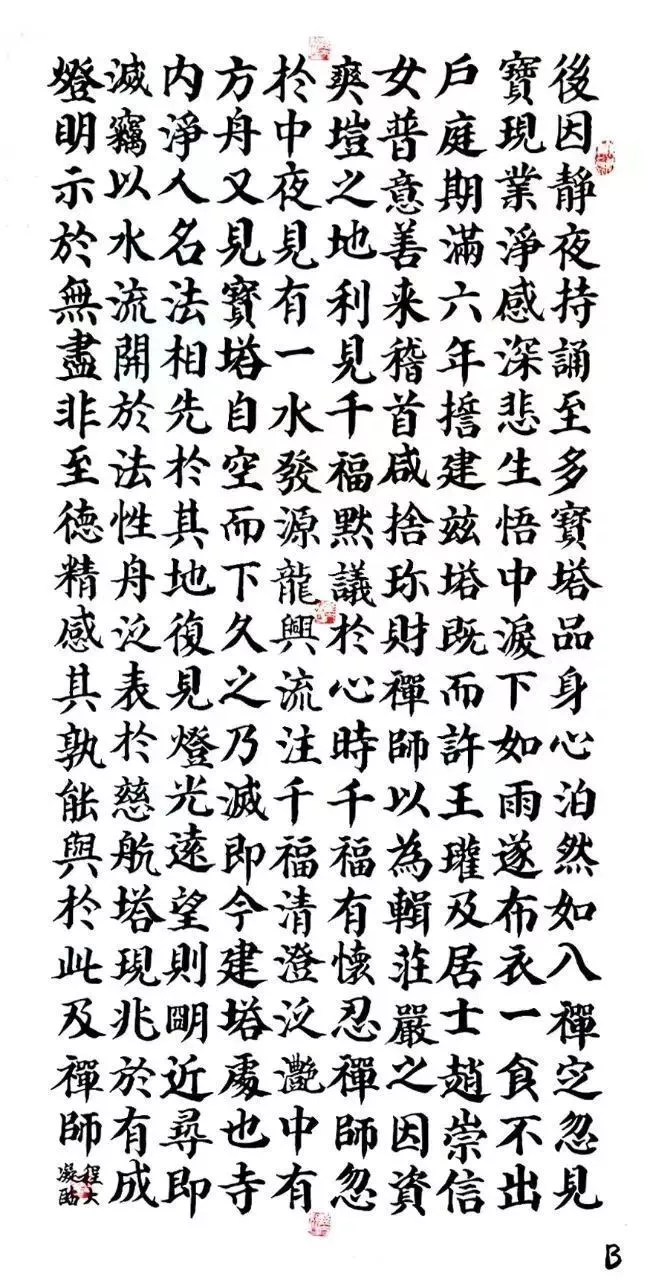 後因靜夜持誦至多寶塔品身心泊然如入禪定忽見
寶現業淨感深悲生悟中淚下如雨遂布衣一食不出
戶庭期滿六年誓建茲塔既而許王瓘及居士趙崇信
女普意善来稽首咸捨珎財禪師以為輯莊嚴之因資
爽塏之地利見千福默議於心時千福有懷忍禪師忽
於中夜見有一水發源龍興流注千福清澄泛灔中有
方舟又見寶塔自空而下久之乃滅即今建塔處也寺
内淨人名法相先於其地復見燈光遠望則明近尋即
滅竊以水流開於法性舟泛表於慈航塔現兆於有成
燈明示於無盡非至德精感其孰能與於此及禪師
B